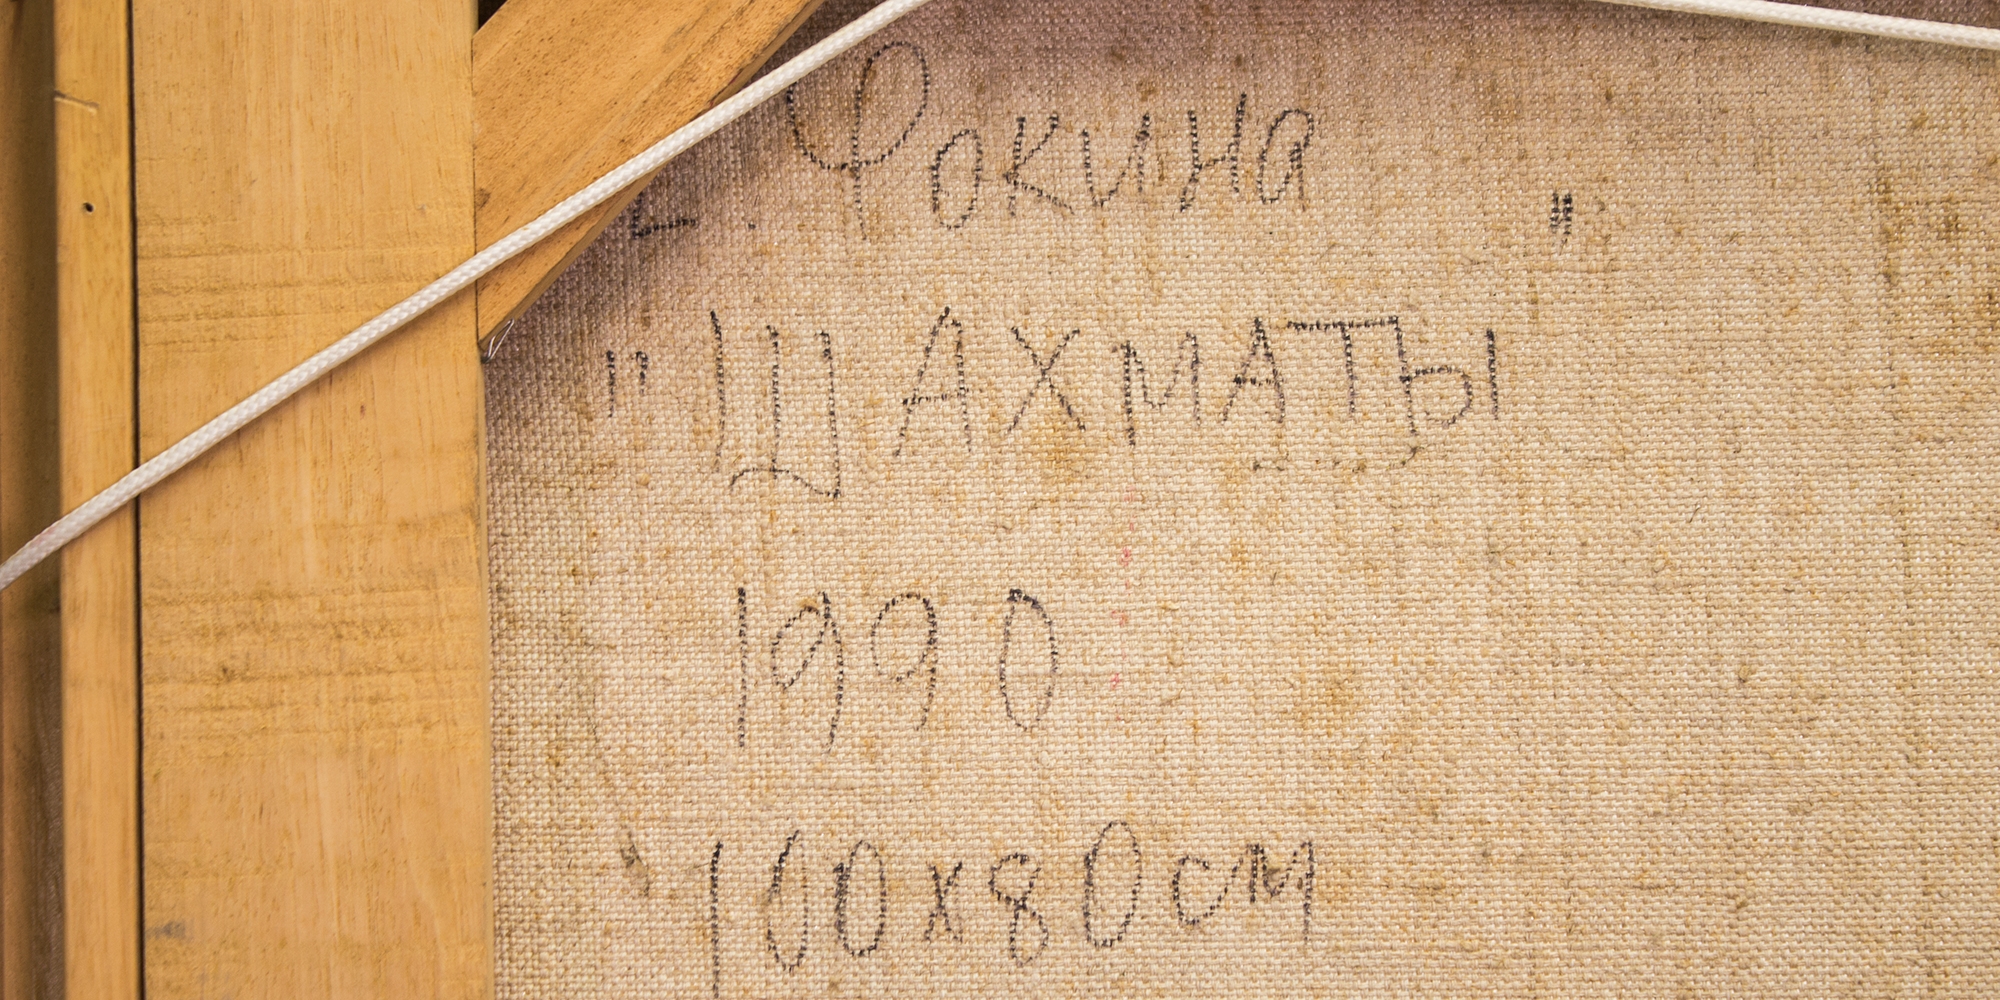 . Фокина
"ШАХМАТЫ"
1990
100х80см